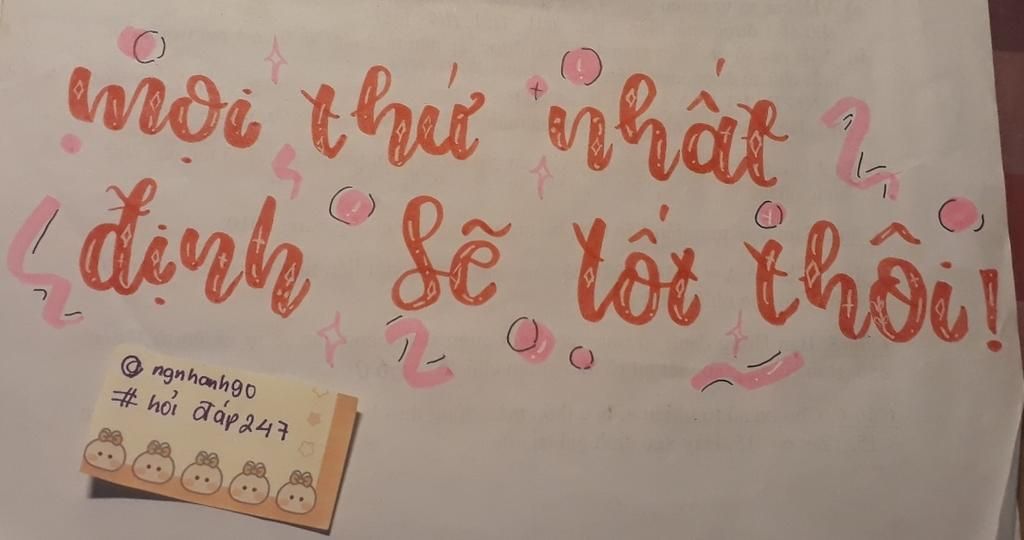 mọi thứ nhất
định sẽ tốt thôi!
@ ngnhanh90
# hỏi đáp 247